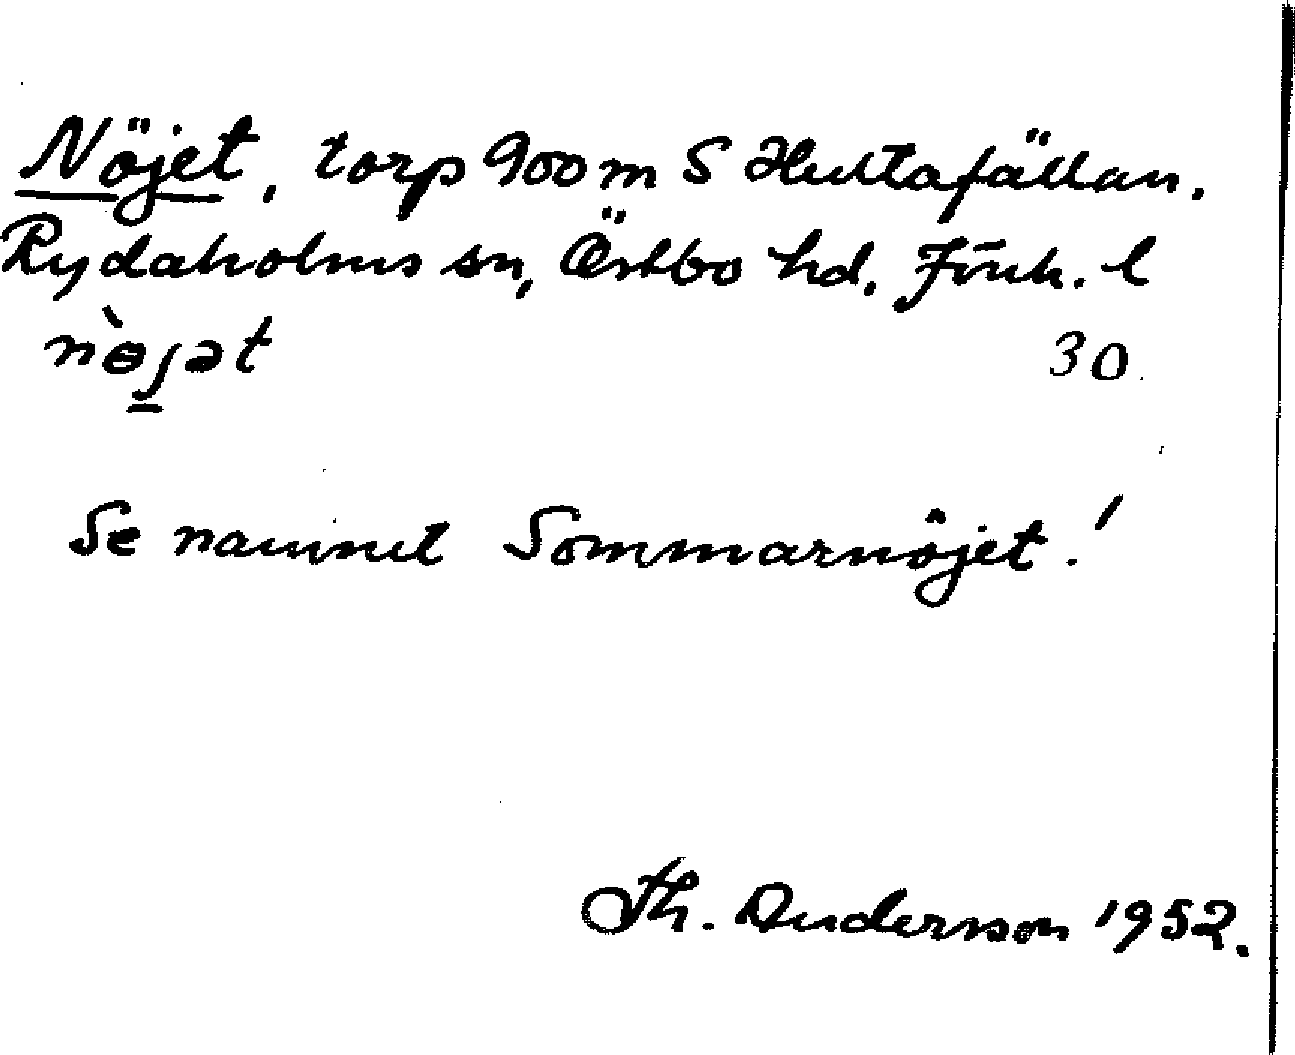 Nöjet, torp 900 m S Hultafällan.
Rydaholms sn, Östbo hd. Jönk. l
nɵ̀jət 30
Se namnet Sommarnöjet!
Th. Andersson 1952.